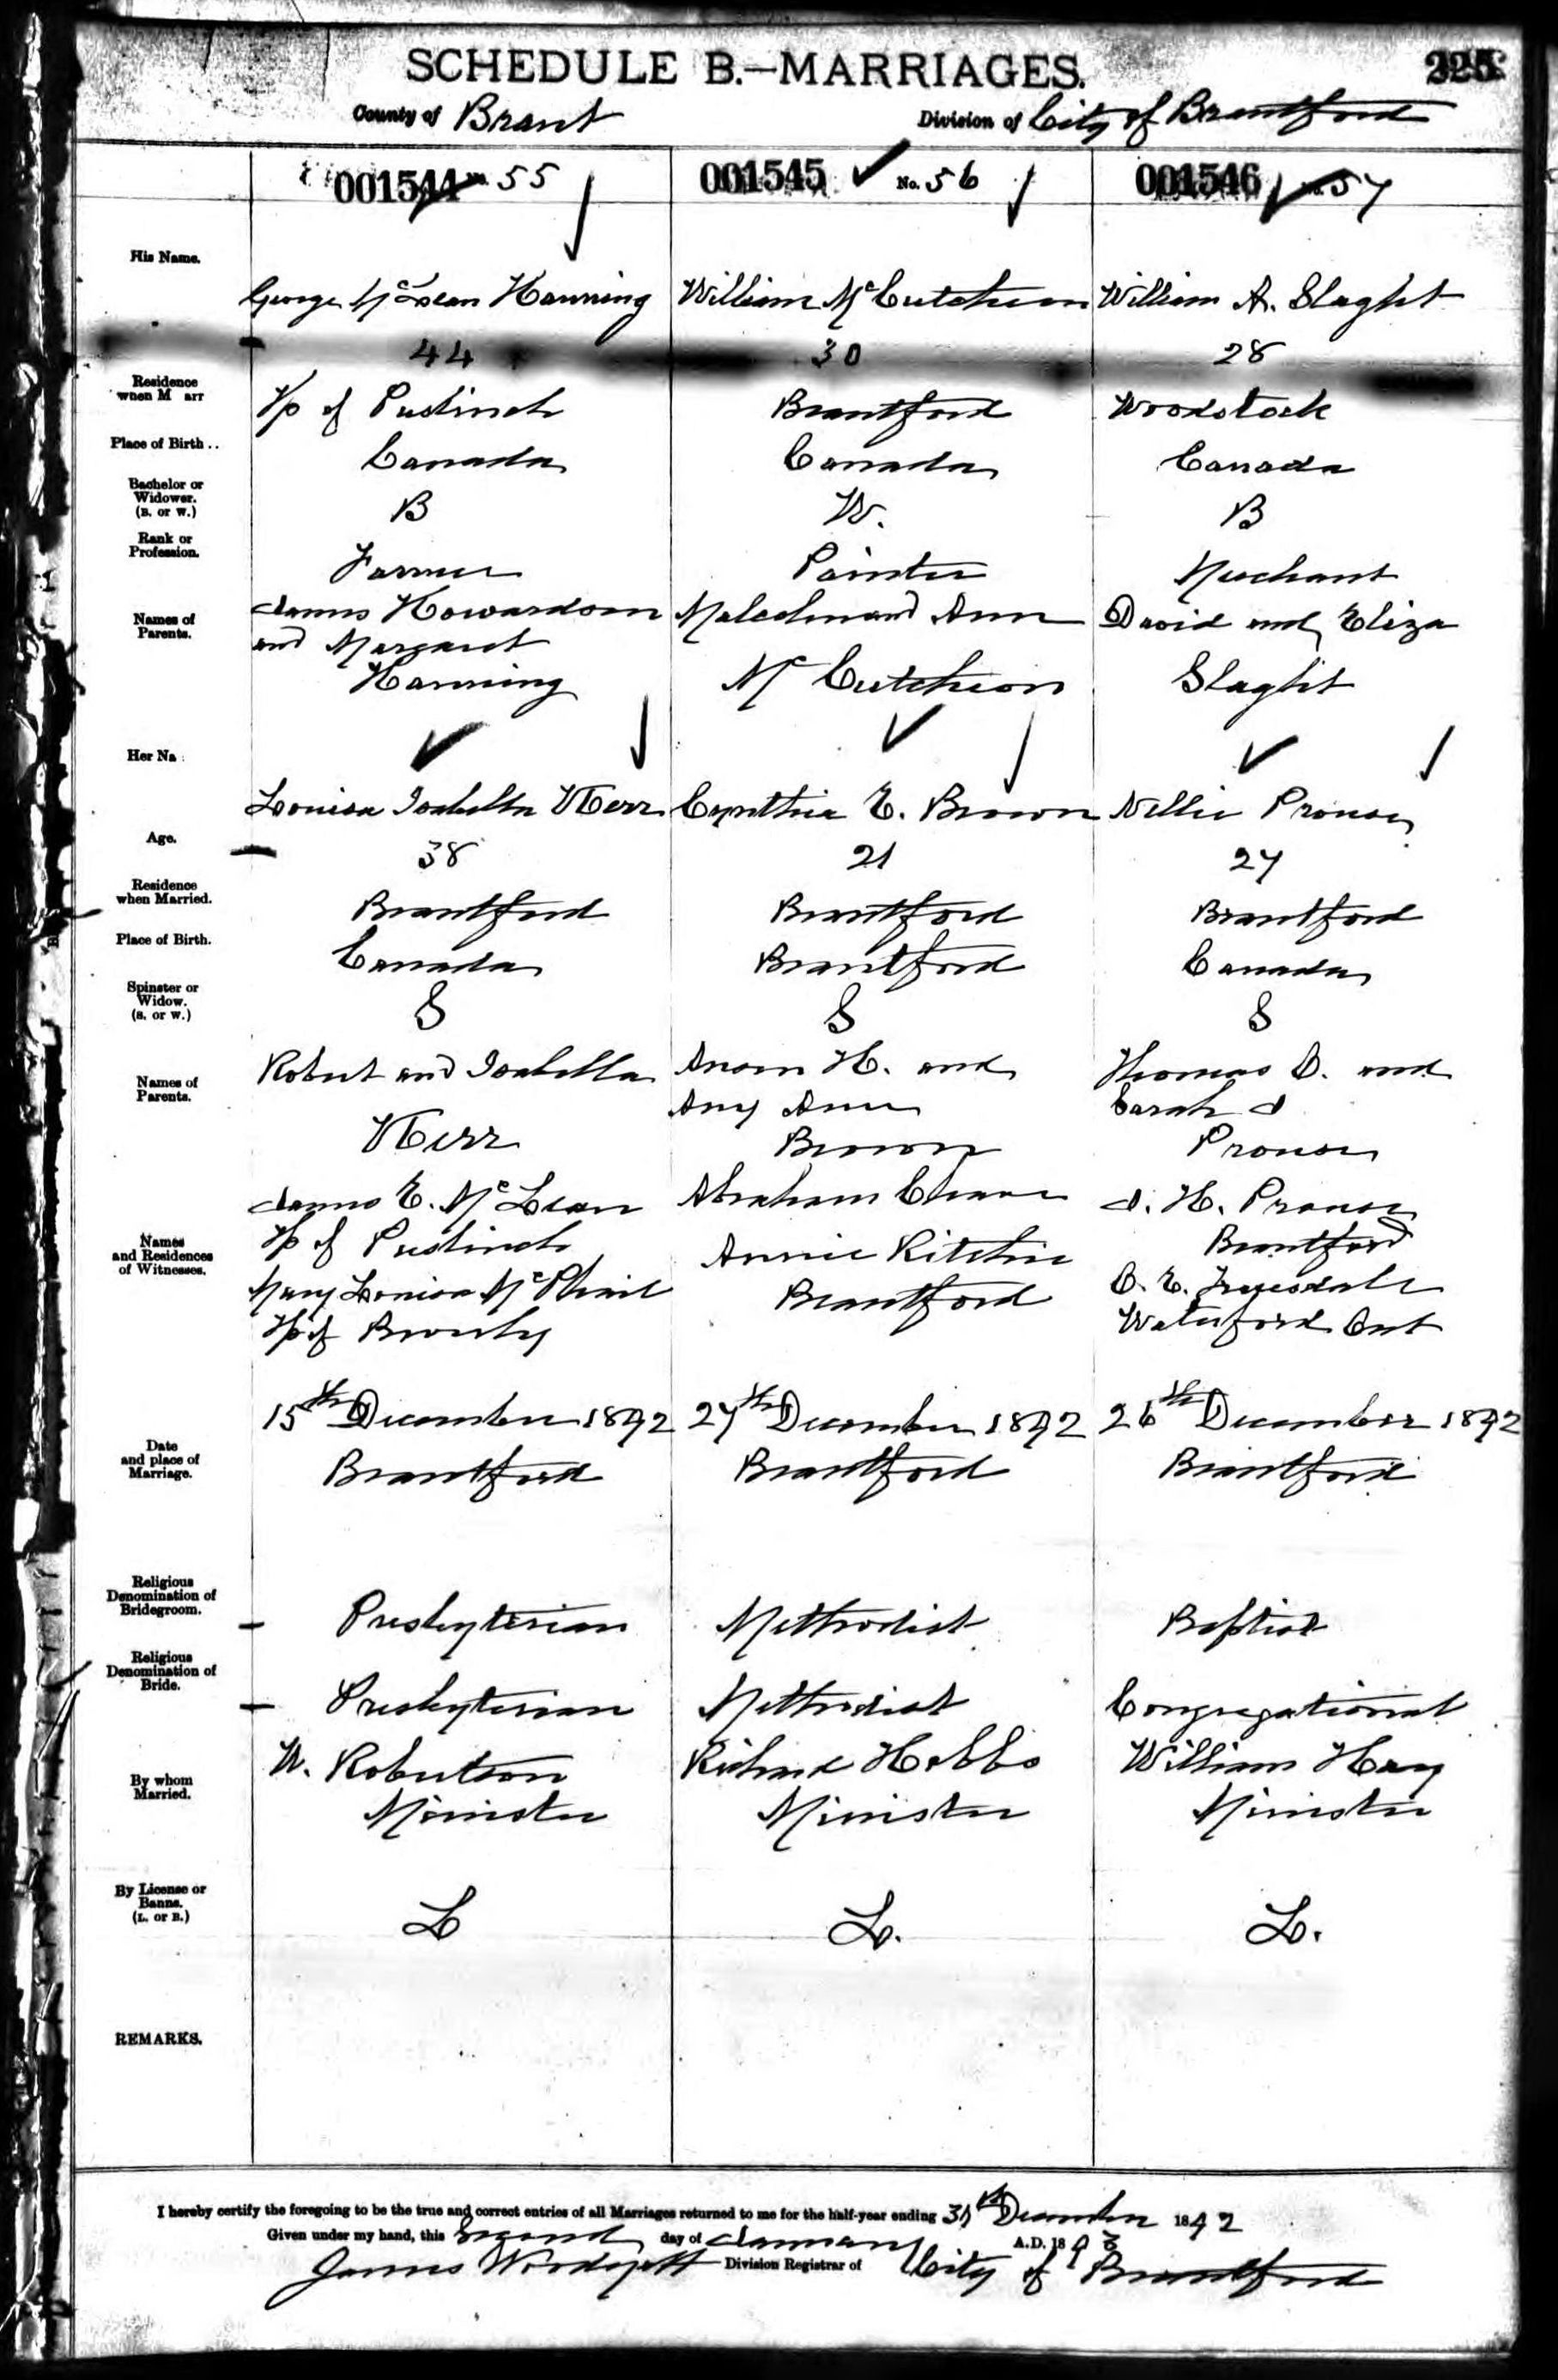 SCHEDULE B.—MARRIAGES.
225
County of Brant
Division of City of Brantford
001544 No. 55
001545 No. 56
001546 No. 57
His Name.
George McLean Hanning
William McCutcheon
William A. Slaght
44
30
28
Residence when M arr
Tp of Puslinch
Brantford
Woodstock
Place of Birth ..
Canada
Canada
Canada
Bachelor or Widower. (B. or W.)
B
W.
B
Rank or Profession.
Farmer
Painter
Merchant
Names of Parents.
James Howardson
and Margaret
Hanning
Malcolm and Ann
McCutcheon
David and Eliza
Slaght
Her Na
Louisa Isabella Kerr
Cynthia E. Brown
Nellie Prouse
Age.
38
21
27
Residence when Married.
Brantford
Brantford
Brantford
Place of Birth.
Canada
Brantford
Canada
Spinster or Widow. (S. or W.)
S
S
S
Names of Parents.
Robert and Isabella
Kerr
H. and
Amy Ann
Brown
Thomas O. and
Sarah J
Prouse
Names and Residences of Witnesses.
James E. McLean
Tp of Puslinch
Mary Louisa McPhail
Tp of
Abraham
Annie Ritchie
Brantford
J. H. Prouse
Brantford
Waterford Ont
Date and place of Marriage.
15th December 1892
Brantford
27th December 1892
Brantford
26th December 1892
Brantford
Religious Denomination of Bridegroom.
Presbyterian
Methodist
Baptist
Religious Denomination of Bride.
Presbyterian
Methodist
Congregational
By whom Married.
W. Robertson
Minister
Richard Hobbs
Minister
William Hay
Minister
By License or Banns. (L. or B.)
L
L.
L.
REMARKS.
I hereby certify the foregoing to be the true and correct entries of all Marriages returned to me for the half-year ending 31st December 1892
Given under my hand, this Second day of January A.D. 1893
James Woodyatt Division Registrar of City of Brantford